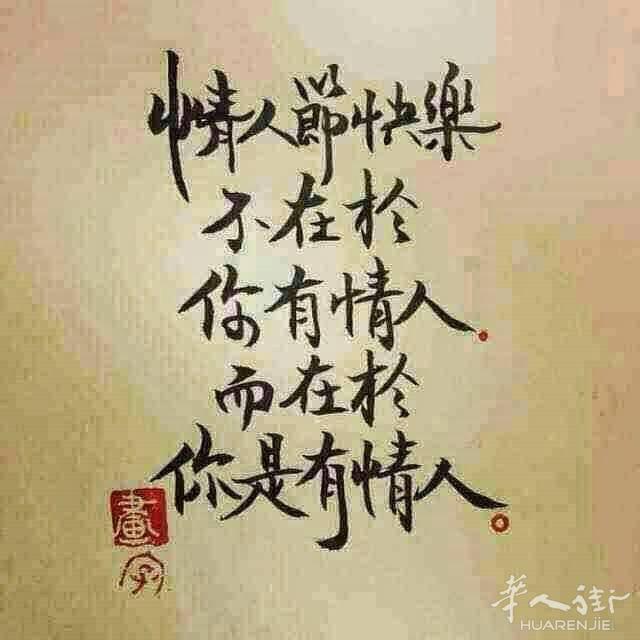 情人節快樂
不在於
你有情人.
而在於
你是有情人。
畫字
華人街
HUARENJIE